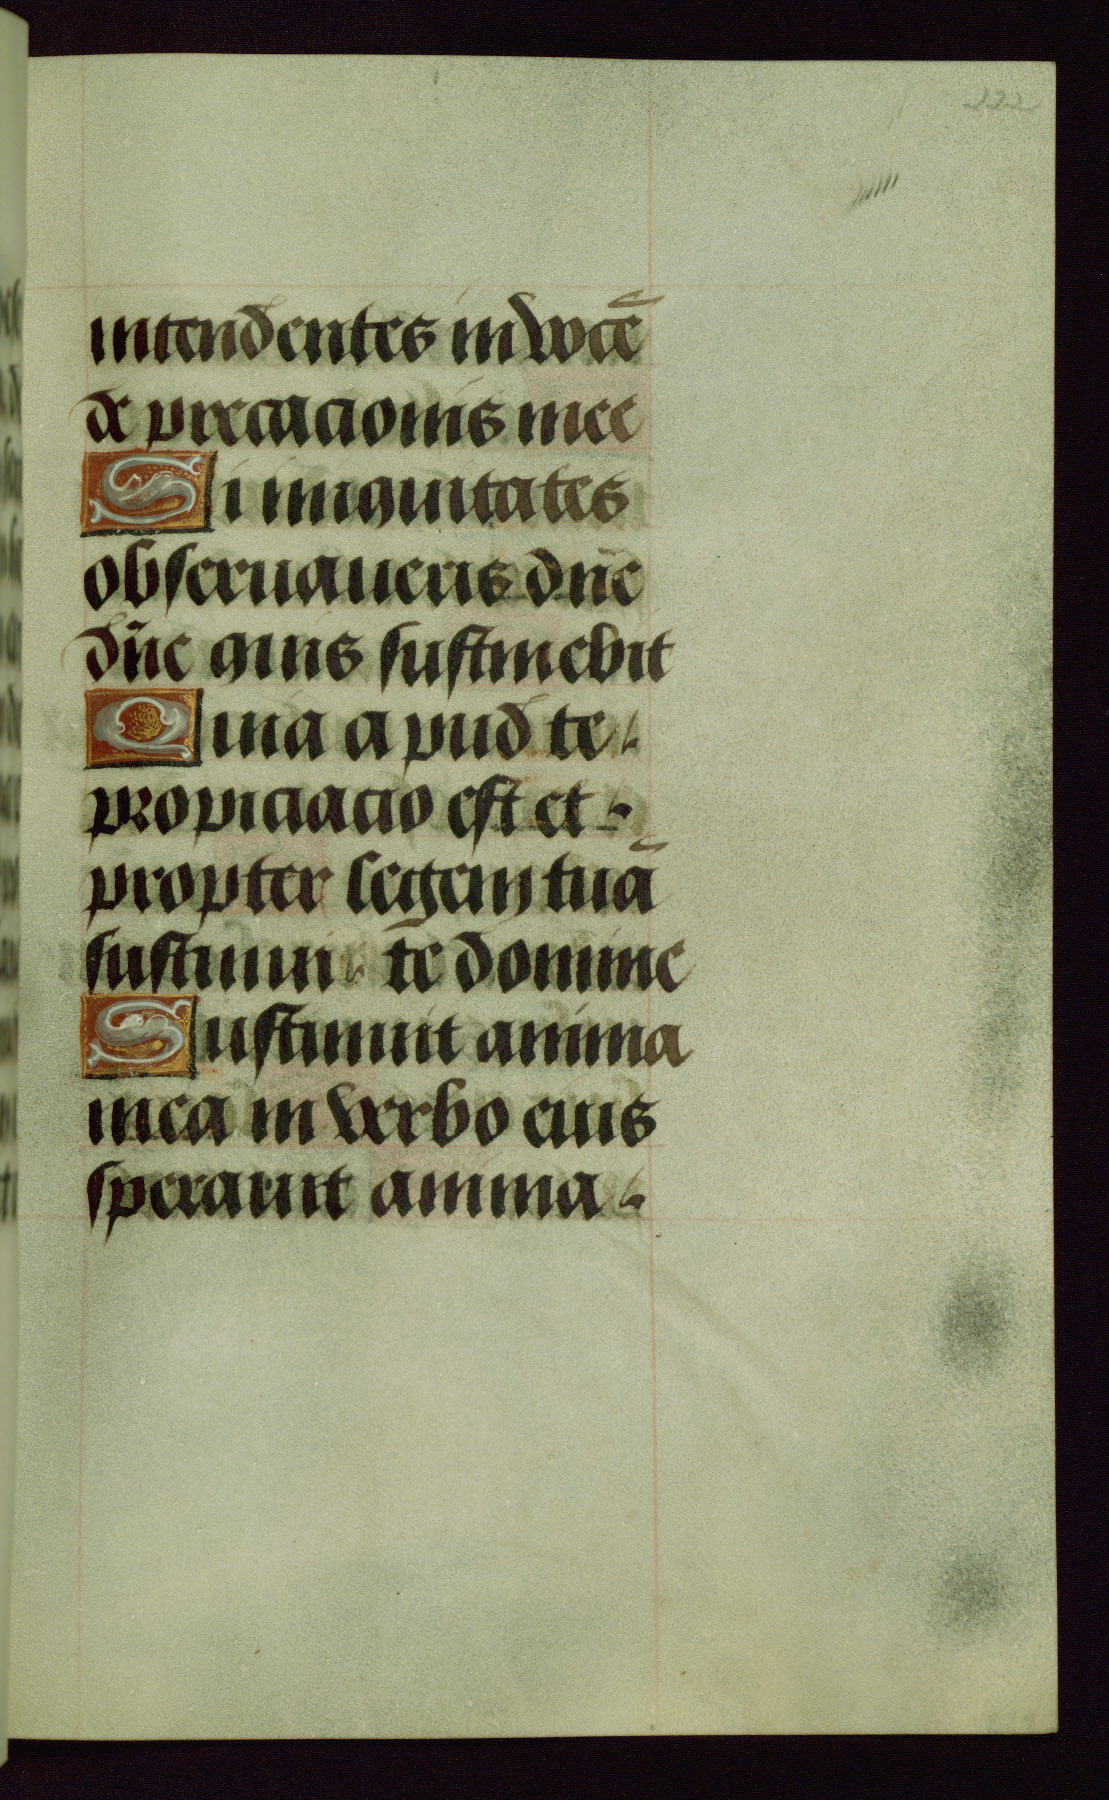 222
intendentes in vocē
de precacionis mee
Si iniquitates
obseruaueris dn̄e
dn̄e quis sustinebit
Quia apud te
propiciacio est et
propter legem tuā
sustinui tē domine
Sustinuit anima
mea in verbo eius
sperauit anima